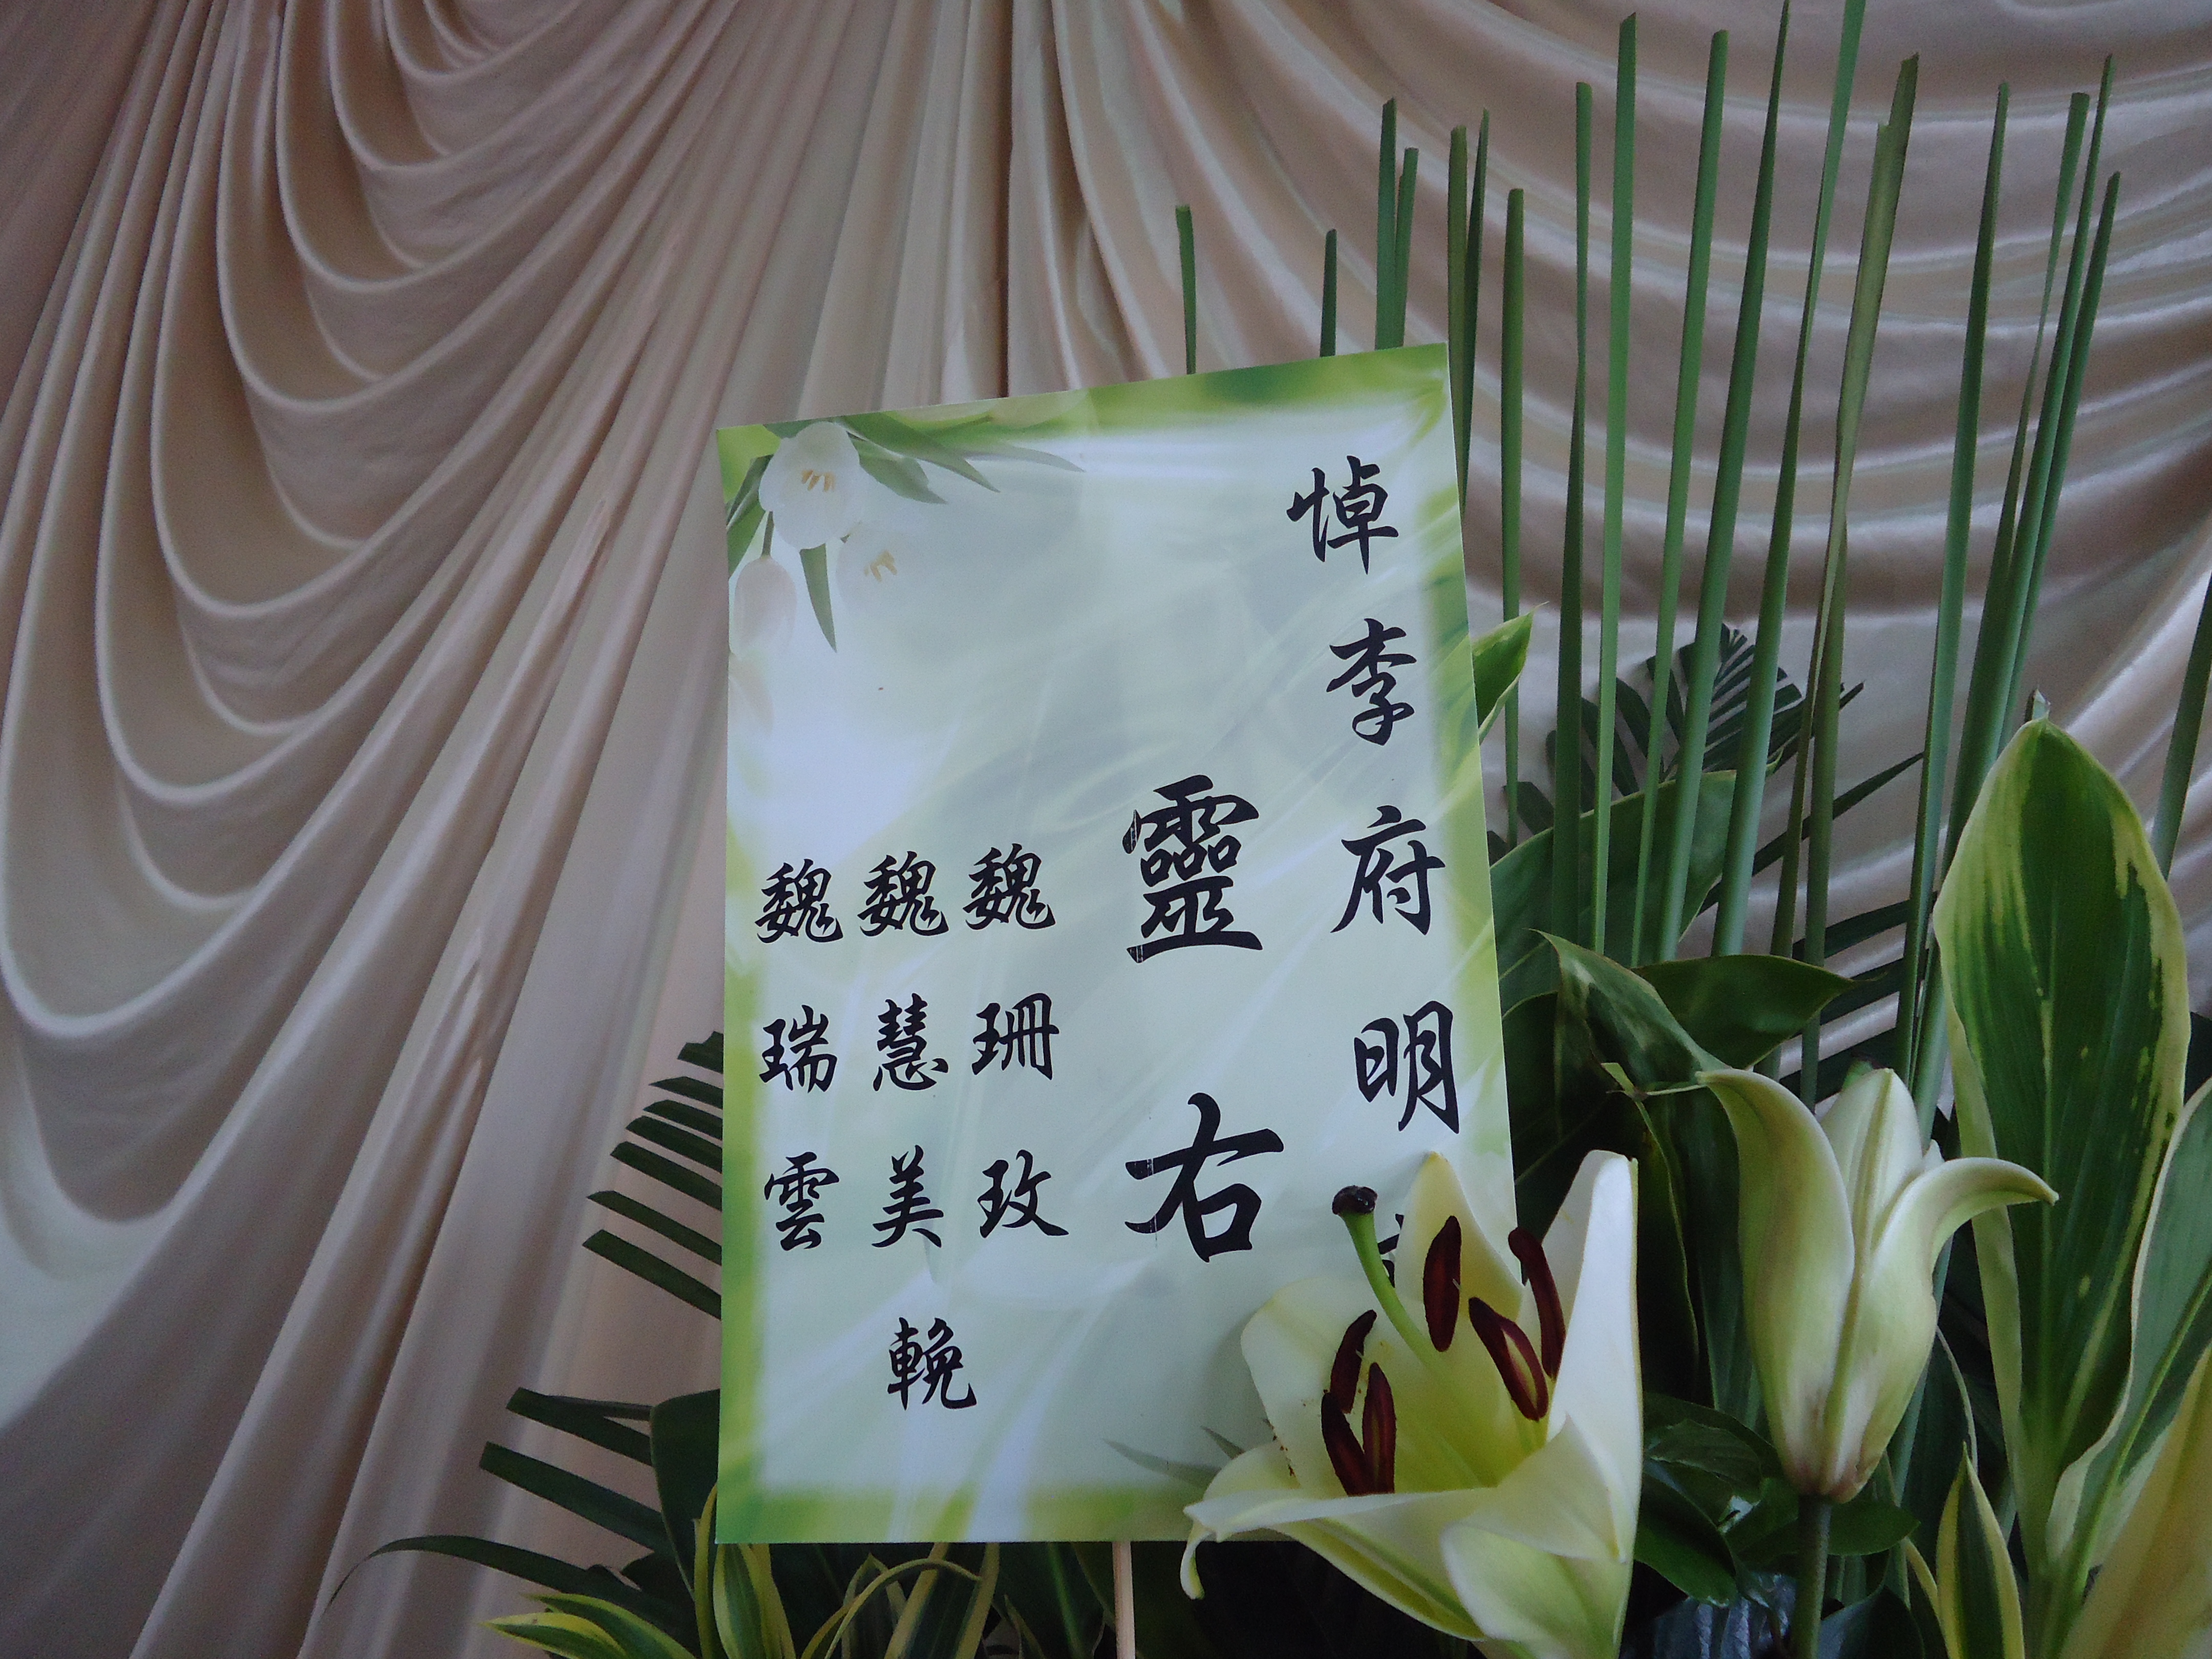 悼李府明
靈右
魏珊玫
魏慧美
魏瑞雲
輓